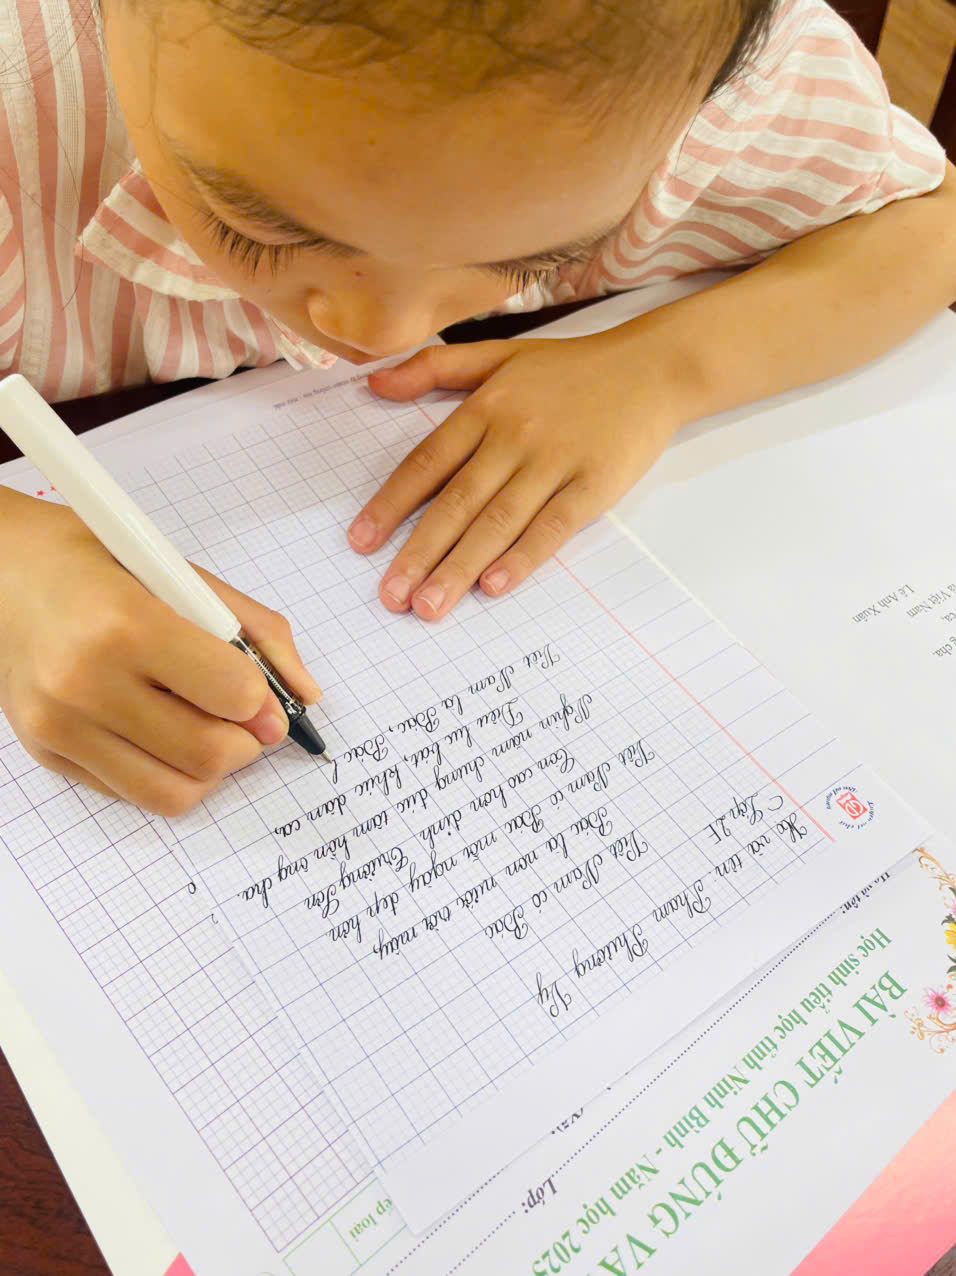 Họ và tên: Phạm Phương Vy
Lớp
Việt Nam có Bác
Bác là non nước trời mây,
Việt Nam có Bác mỗi ngày đẹp hơn.
Còn cao hơn đỉnh Trường Sơn
Nghìn năm chung đúc tâm hồn ông cha.
Điệu lục bát, khúc dân ca,
Việt Nam là Bác, Bác l
BÀI VIẾT CHỮ ĐỨNG VÀ
Học sinh tiểu học tỉnh Ninh Bình - Năm học 2025
Họ và tên:
Lớp:
ếp loại
cha.
ca,
Việt Nam
Lê Anh Xuân